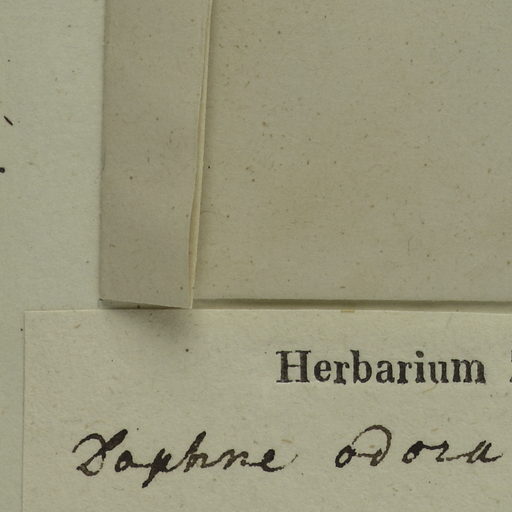 Herbarium
Daphne odora